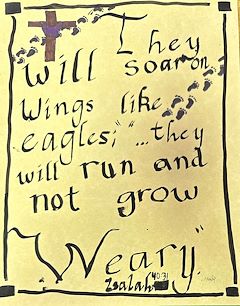 They
will soar on
Wings like
eagles;" "...they
will run and
not grow
Weary"
Isaiah 40:31